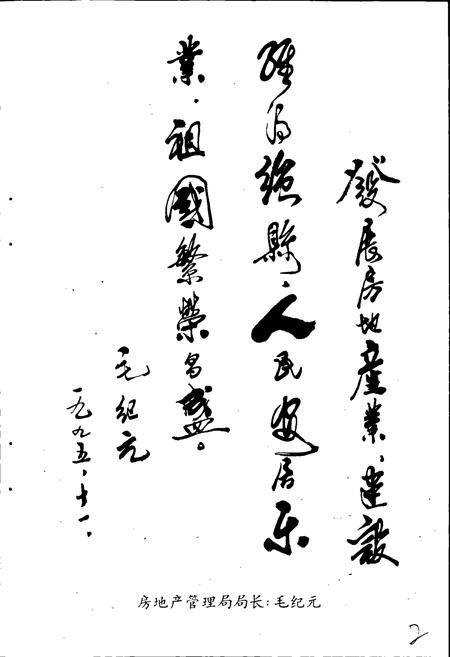 發展房地產業、建設
强縣、人民安居乐
業、祖國繁榮昌盛。
毛纪元
一九九五、十一、
房地产管理局局长:毛纪元
2